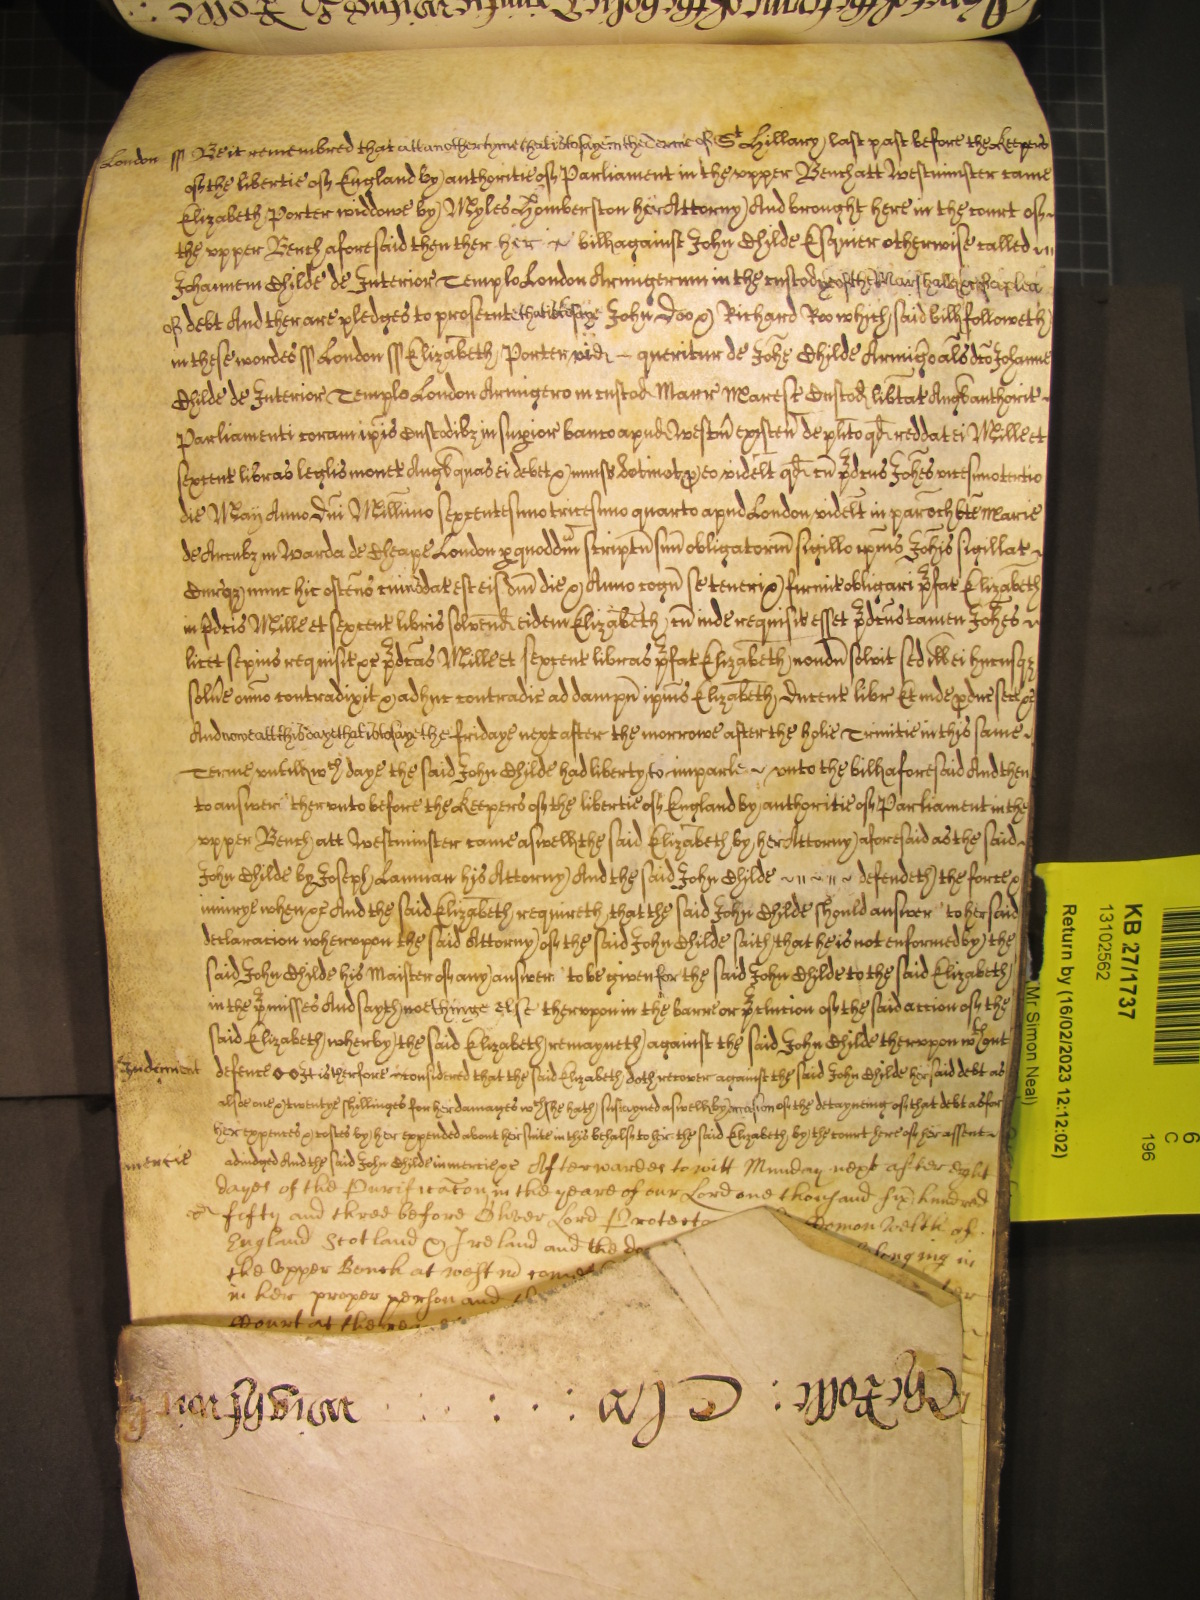 London ss Be it remembred that att another tyme that is to saye in the Terme of St Hillary last past before the Keepers
of the libertie of England by authoritie of Parliament in the vpper Bench att Westminster came
Elizabeth Porter widdowe by Myles Homberston her Attorny And brought here in the court of
the vpper Bench aforesaid then ther her bill against John Childe Esquier otherwise called
Johannem Childe de Interior Templo London Armigerum in the custody of the Marshall &c of a plea
of debt And there are pledges to prosecute that is to saye John Doo & Richard Roo which said bill followeth
in these wordes ss London ss Elizabeth Porter vid queritur de Johe Childe Armigo als dco Johanne
Childe de Interior Templo London Armigero in custod Marr Maresc Custod libtat Angl authoritt
Parliamenti coram ipis Custodibz in supior banco apud Westm existen de plito qd reddat ei Mille et
sexcent libras leglis monet Angl quas ei debet & iniuste detinet p eo videlt qd cu pdcus Johes vicesimo tertio
die Maij Anno Dni Millimo sexcentesimo tricesimo quarto apud London videlt in paroch bte Marie
de Arcubz in Warda de Cheape London p quoddm scriptu suu obligatoriu sigillo ipius Johis sigillat
Curieqz nunc hic ostens cuius dat est eisdm die & Anno cogn se teneri & firmit obligari pfat Elizabeth
in pdcis Mille et sexcent libris solvend eidem Elizabeth cu inde requisit esset pdcus tamen Johes
licet sepius requisit &c pdcas Mille et sexcent libras pfat Elizabeth nondu solvit sed ill ei hucusqz
solue omo contradixit & adhuc contradic ad dampn ipius Elizabeth Ducent libr Et inde pduc sect &c
And nowe att this daye that is to saye the fridaye next after the morrowe after the holie Trinitie in this same
Terme vntill wch daye the said John Childe had liberty to imparle vnto the bill aforesaid And then
to answer ther vnto before the Keepers of the libertie of England by authoritie of Parliament in the
vpper Bench att Westminster came aswell the said Elizabeth by her Attorny aforesaid as the said
John Childe by Joseph Lannan his Attorny And the said John Childe defendeth the force &
iniurye when &c And the said Elizabeth requireth that the said John Childe should answer to her said
declaration wherevpon the said Attorny of the said John Childe saith that he is not enformed by the
said John Childe his Maister of any answer to be given for the said John Childe to the said Elizabeth
in the pmisses And sayth noethinge else thervpon in the barre or pclusion of the said action of the
said Elizabeth wherby the said Elizabeth remayneth against the said John Childe thervpon wthout
Judgment defence It is therfore considered that the said Elizabeth doth recover against the said John Childe her said debt as
alsoe one & twentye shillinges for her damages wch she hath sustayned aswell by occasion of the detayneing of that debt as for
her expences & costes by her expended about her suite in this behalfe to her the said Elizabeth by the court here of her assent
mercie adiudged And the said John Childe in mercie &c Afterwardes to witt Munday next after eight
dayes of the Purificacon in the yeare of our Lord one thousand six hundred
fifty and three before Oliver Lord Protecto Comon Welth of
England Scotland & Ireland and the do belonging in
the Vpper Bench at westm come
in her proper person and th
Court at the
The Rolle
KB 27/1737
13102562
Return by (16/02/2023 12:12:02)
Mr Simon Neal)
6
C
196